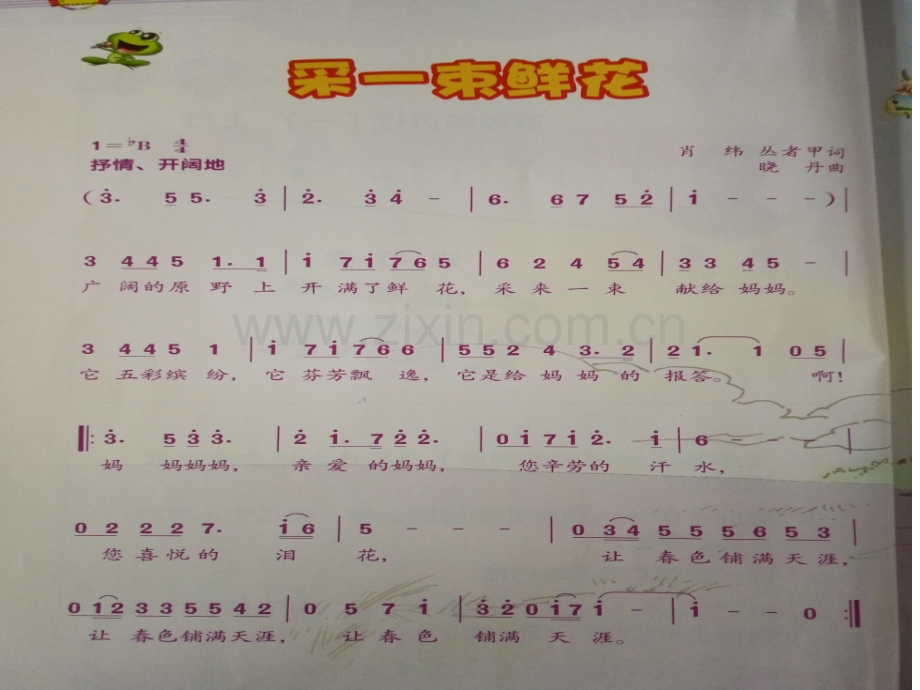 采一束鲜花
1=♭B 4/4
肖 纬 丛者甲词
抒情、开阔地
晓 丹曲
(3̇· 5 5· 3̇ | 2̇· 3̇ 4̇ - | 6· 6 7 5 2̇ | 1̇ - - - )|
3 4 4 5 1· 1 | 1̇ 7 1̇ 7 6 5 | 6 2 4 5 4 | 3 3 4 5 - |
广 阔的原 野 上 开 满了鲜 花, 采 来 一 束 献给 妈妈。
www.zixin.com.cn
3 4 4 5 1 | 1̇ 7 1̇ 7 6 6 | 5 5 2 4 3· 2 | 2 1· 1 0 5 |
它 五彩缤 纷, 它 芬芳飘 逸, 它是给 妈妈 的 报答。 啊!
‖: 3̇· 5 3̇ 3̇· | 2̇ 1̇· 7 2̇ 2̇· | 0 1̇ 7 1̇ 2̇· 1̇ | 6 - - - |
妈 妈妈妈, 亲 爱 的妈妈, 您辛劳的 汗 水,
0 2 2 2 7· 1̇ 6 | 5 - - - | 0 3 4 5 5 5 6 5 3 |
您 喜 悦 的 泪 花, 让 春色铺满天涯,
0 1 2 3 3 5 5 4 2 | 0 5 7 1̇ | 3̇ 2̇ 0 1̇ 7 1̇ - | 1̇ - - 0 :‖
让 春色铺满天涯, 让 春 色 铺满 天 涯。